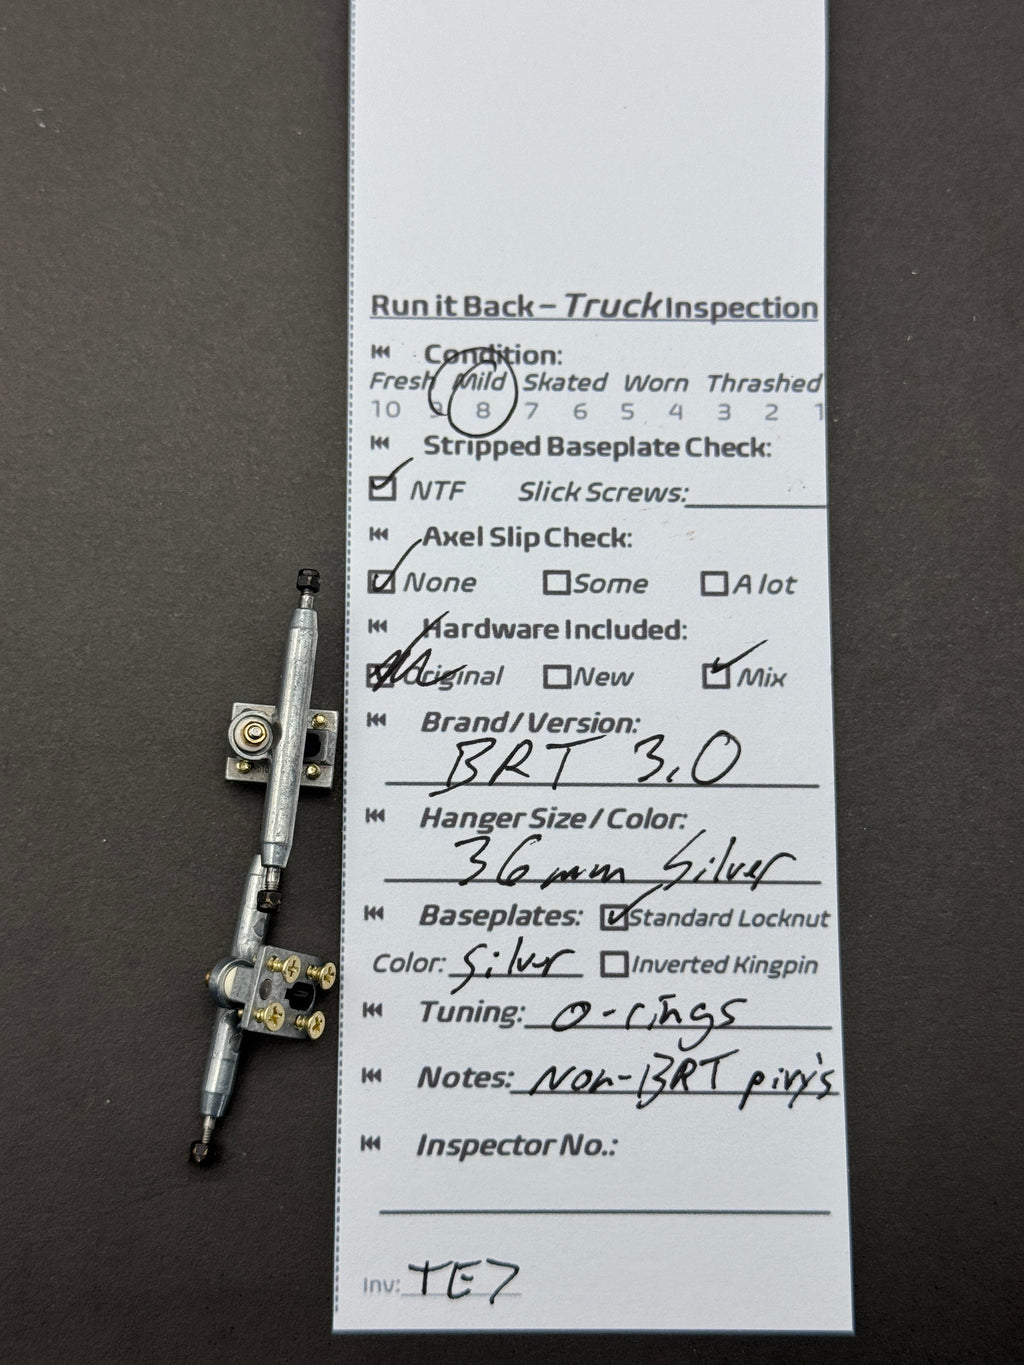 Run it Back – Truck Inspection
Condition:
Fresh Mild Skated Worn Thrashed
10 9 8 7 6 5 4 3 2 1
Stripped Baseplate Check:
NTF Slick Screws:
Axel Slip Check:
None Some A lot
Hardware Included:
Original New Mix
Brand/Version:
BRT 3.0
Hanger Size/Color:
36mm Silver
Baseplates: Standard Locknut
Color: Silver Inverted Kingpin
Tuning: O-rings
Notes: Non-BRT pivy's
Inspector No.:
Inv: TE7